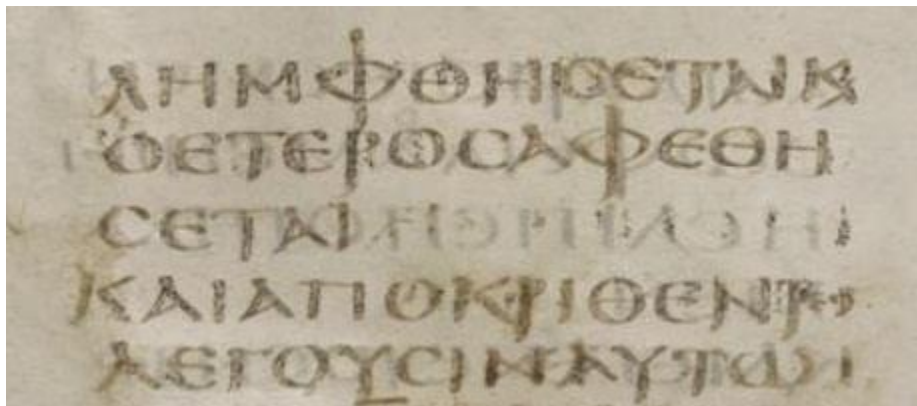 ΛΗΜΦΘΗϹΕΤΑΙΚ
ΟΕΤΕΡΟϹΑΦΕΘΗ
ϹΕΤΑΙ
ΚΑΙΑΠΟΚΡΙΘΕΝΤεϲ
ΛΕΓΟΥϹΙΝΑΥΤΩΙ